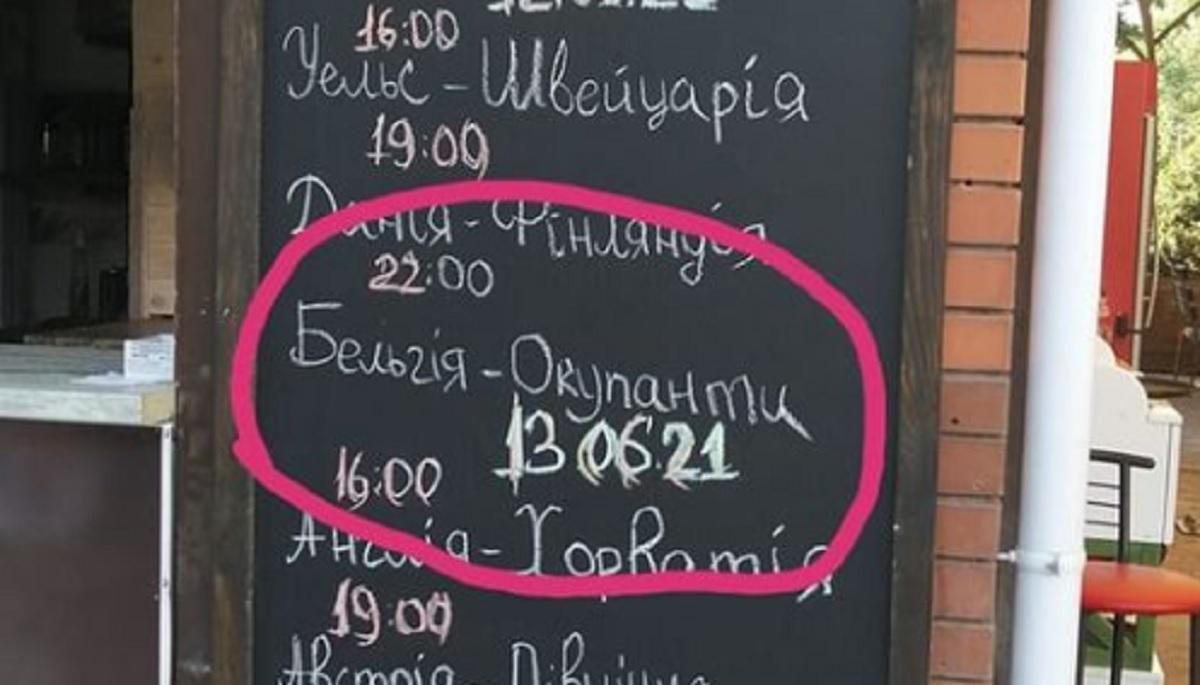 16:00
Уельс - Швейцарія
19:00
Данія - Фінляндія
22:00
Бельгія - Окупанти
13.06.21
16:00
Англія - Хорватія
19:00
Австрія - Північна